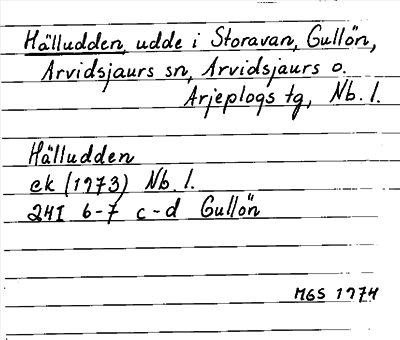 Hälludden, udde i Storavan, Gullön,
Arvidsjaurs sn, Arvidsjaurs o.
Arjeplogs tg, Nb. l.
Hälludden
ek (1973) Nb. l.
24I 6-7 c-d Gullön
MGS 1974